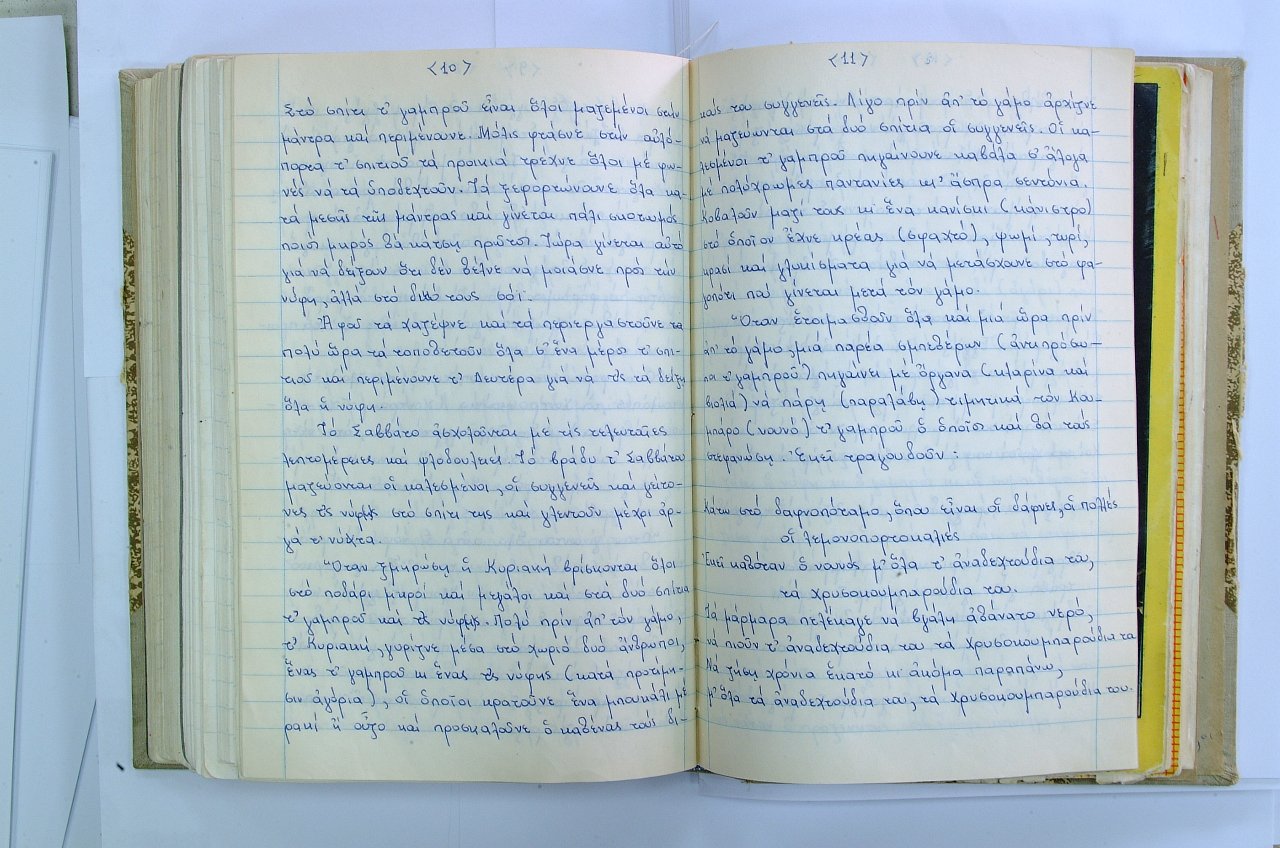 <10>
Στό σπίτι τ' γαμπροῦ εἶναι ὅλοι μαζεμένοι στήν
μάντρα καί περιμένουνε. Μόλις φτάσνε στήν αὐλό-
πορτα τ' σπιτιοῦ τά προικιά τρέχνε ὅλοι μέ φω-
νές νά τά ὑποδεχτοῦν. Τά ξεφορτώνουνε ὅλα κα-
τά μεσῆς τῆς μάντρας καί γίνεται πάλι σκοτωμός
ποιός μικρός θά κάτση πρῶτος. Τώρα γίνεται αὐτό
γιά νά δείξουν ὅτι δέν θέλνε νά μοιάσνε πρός τήν
νύφη, ἀλλά στό δικό τους σόϊ.
Ἀφοῦ τά χαζέψνε καί τά περιεργαστοῦνε γα
πολύ ὥρα τά τοποθετοῦν ὅλα σ' ἕνα μέρος τ' σπι-
τιοῦ καί περιμένουνε τ' Δευτέρα γιά νά τς τά δείξη
ὅλα ἡ νύφη.
Τό Σαββάτο ἀσχολοῦνται μέ τίς τελευταῖες
λεπτομέρειες καί ψλοδουλειές. Τό βράδυ τ' Σαββάτου
μαζεύονται οἱ καλεσμένοι, οἱ συγγενεῖς καί γείτο-
νες τῆς νύφης στό σπίτι της καί γλεντοῦν μέχρι ἀρ-
γά τ' νύχτα.
Ὅταν ξμερώση ἡ Κυριακή βρίσκονται ὅλοι
στό ποδάρι μικροί καί μεγάλοι καί στά δυό σπίτια
τ' γαμπροῦ καί τς νύφης. Πολύ πρίν ἀπ' τόν γάμο,
τ' Κυριακή, γυρίζνε μέσα στό χωριό δυό ἄνθρωποι,
ἕνας τ' γαμπροῦ κι ἕνας τς νύφης (κατά προτίμη-
σιν ἀγόρια), οἱ ὁποῖοι κρατοῦνε ἕνα μπουκάλι μέ
ρακί ἤ οὖζο καί προσκαλοῦνε ὁ καθένας τούς δι-
<11>
κούς του συγγενεῖς. Λίγο πρίν ἀπ' τό γάμο ἀρχίζνε
νά μαζεύωνται στά δυό σπίτια οἱ συγγενεῖς. Οἱ κα-
λεσμένοι τ' γαμπροῦ πηγαίνουνε καβάλα σ' ἄλογα
μέ πολύχρωμες παντανίες κι' ἄσπρα σεντόνια.
Κοβαλοῦν μαζί τους κι' ἕνα κανίσκι (κάνιστρο)
στό ὁποῖον ἔχνε κρέας (σφαχτό), ψωμί, τυρί,
κρασί καί γλυκίσματα γιά νά μετάσχουνε στό φα-
γοπότι πού γίνεται μετά τόν γάμο.
Ὅταν ἑτοιμασθοῦν ὅλα καί μιά ὥρα πρίν
ἀπ' τό γάμο, μιά παρέα σμπεθέρων (ἀντιπρόσω-
πα τ' γαμπροῦ) πηγαίνει μέ ὄργανα (κλαρίνα καί
βιολιά) νά πάρη (παραλάβη) τιμητικά τόν Κου-
μπάρο (νουνό) τ' γαμπροῦ ὁ ὁποῖος καί θά τούς
στεφανώση. Ἐκεῖ τραγουδοῦν:
Κάτω στό δαφνοπόταμο, ὅπου εἶναι οἱ δάφνες, οἱ πολλές
οἱ λεμονοπορτοκαλιές
Ἐκεῖ καθόταν ὁ νουνός μ' ὅλα τ' ἀναδεχτούδια του,
τά χρυσοκουμπαρούδια του.
Τά μάρμαρα πελέκαγε νά βγάλη ἀθάνατο νερό,
νά πιοῦν τ' ἀναδεχτούδια του τά χρυσοκουμπαρούδια του
Νά ζήση χρόνια ἑκατό κι' ἀκόμα παραπάνω,
μ' ὅλα τά ἀναδεχτούδια του, τά χρυσοκουμπαρούδια του.